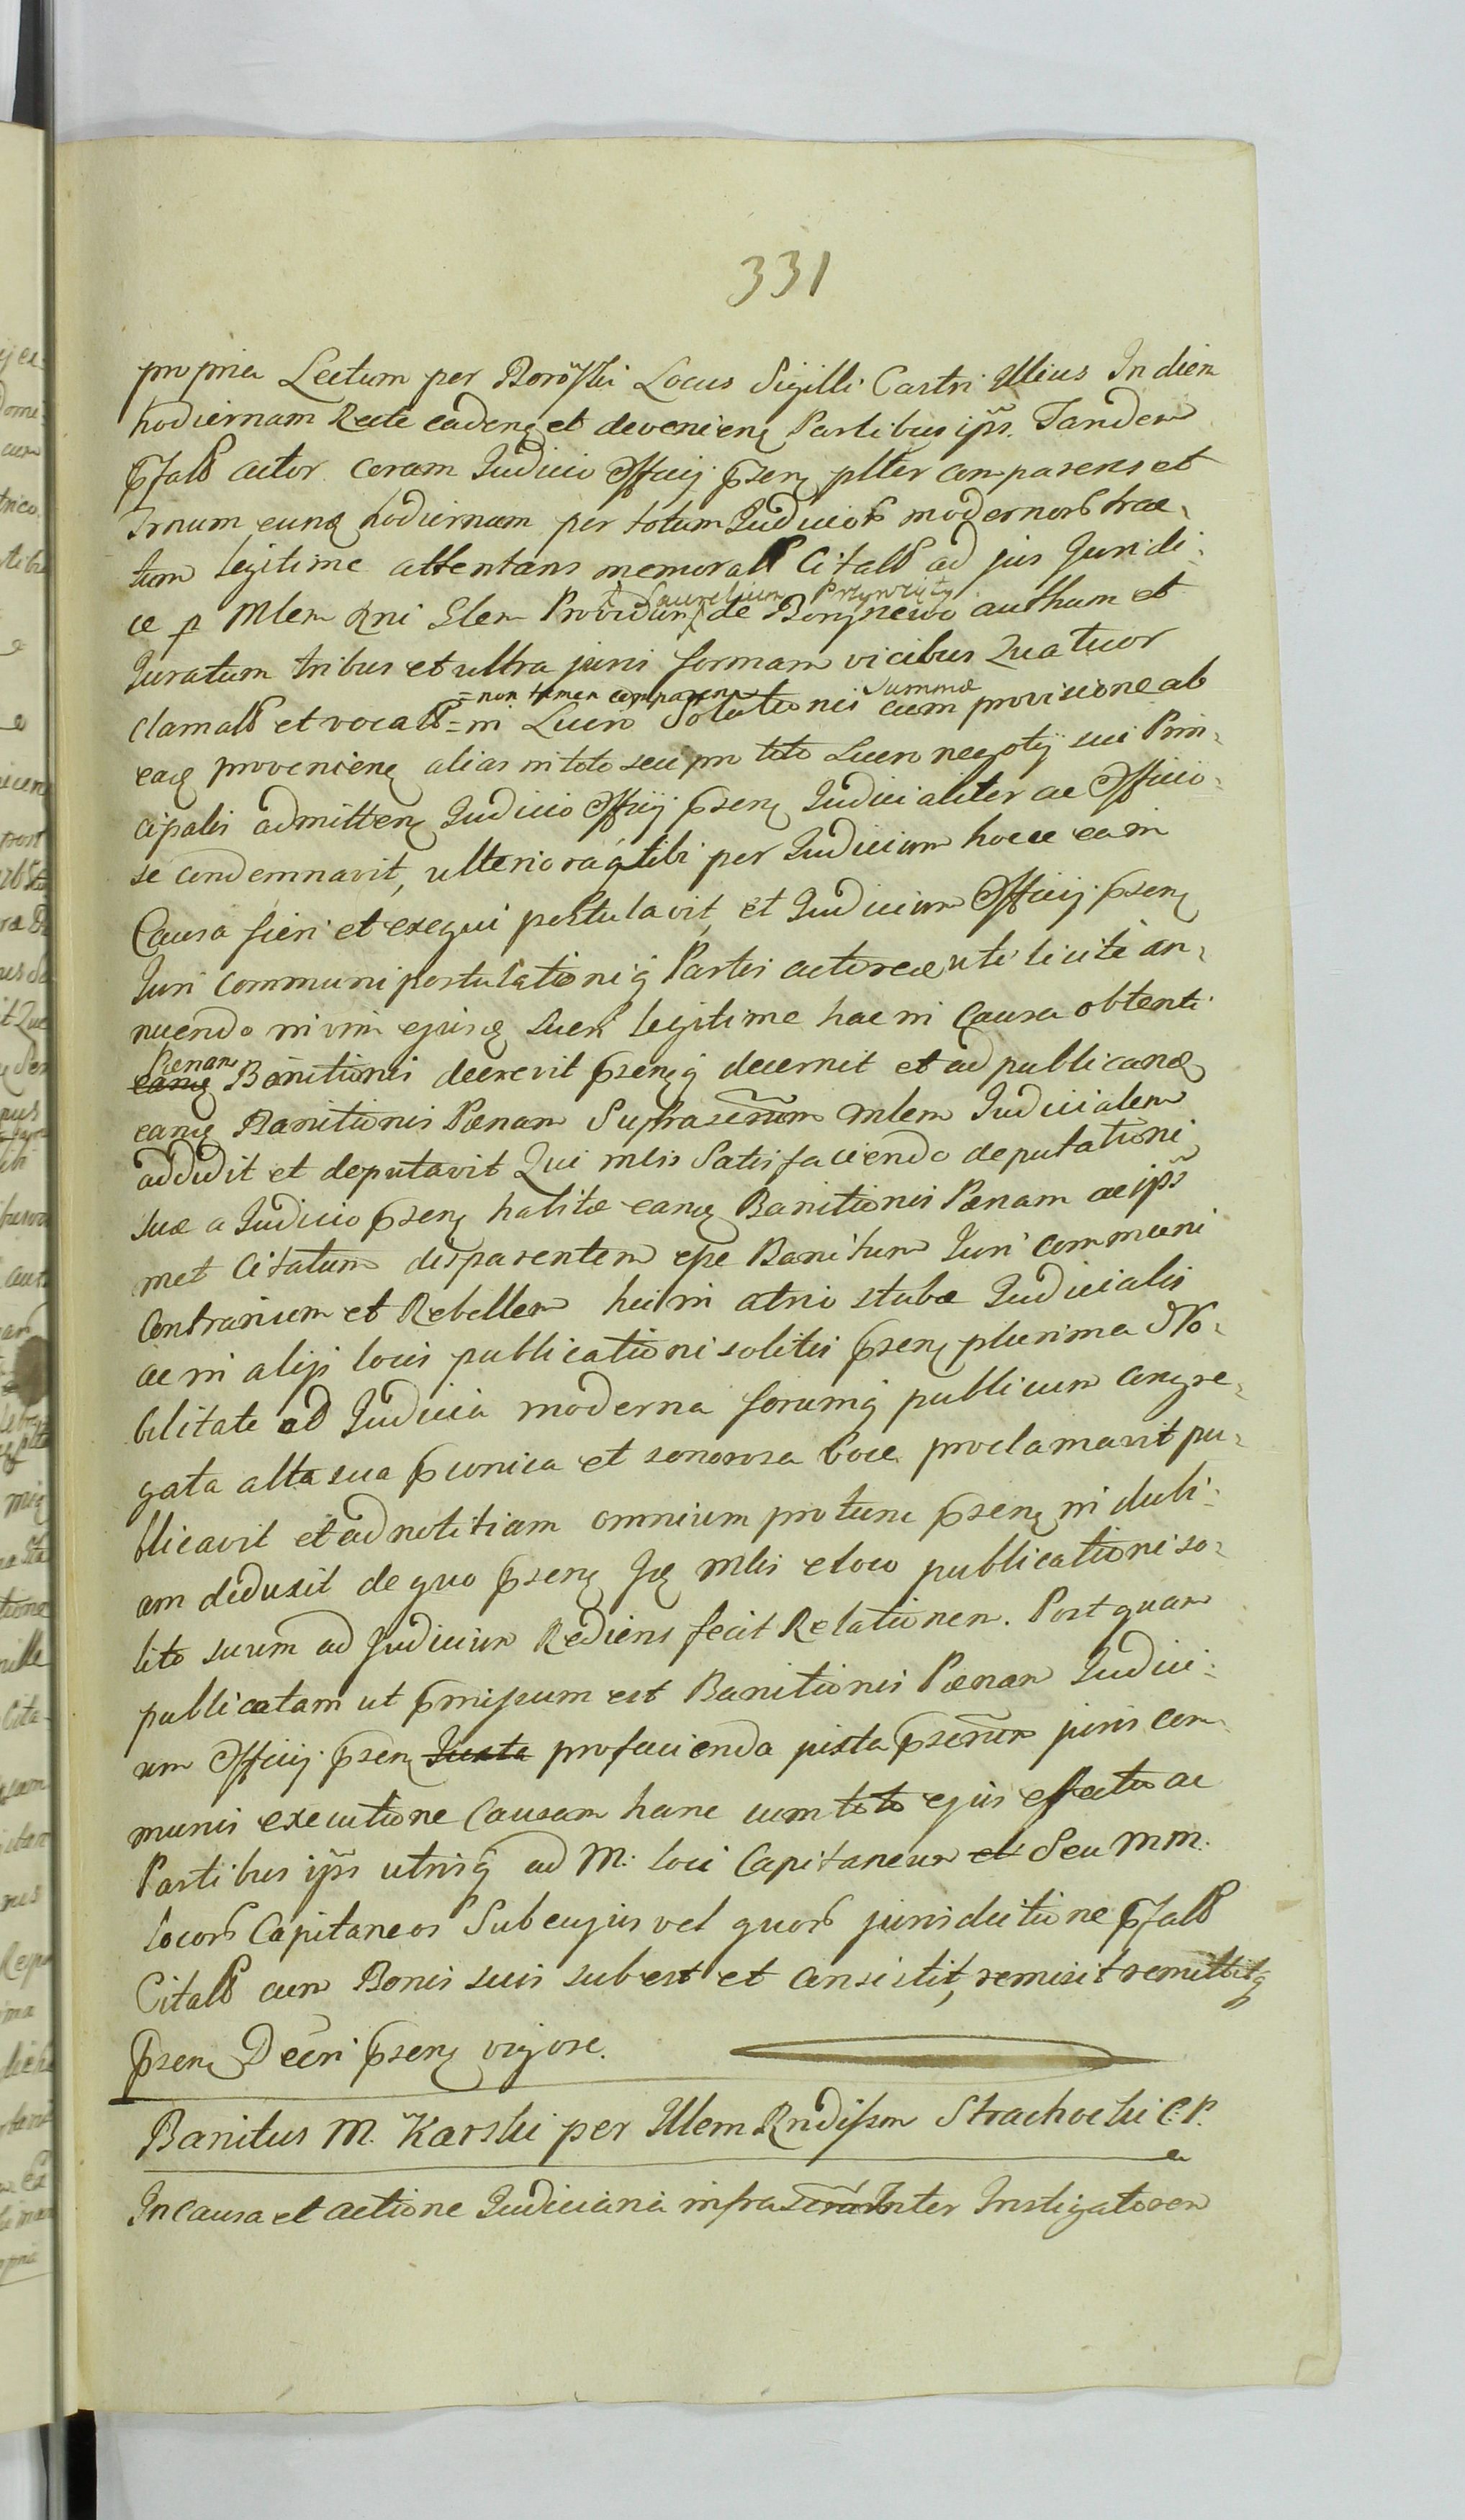 331
propria Lectum per Boroski Locus Sigilli Castri Illius In diem
hodiernam Recte cadenq et devenienq Partibus ips. Tandem
actor coram Judicio Officij psenq plter comparens et
Trnum eunq hodiernum per totum Judicior modernor trac-
tum legitime attentans memorat Citat ad jus Juridi-
ce p Mlem Rni Glem Providum Laurentium Przywrzity de authum et
Juratum tribus et ultra juris formam vicibus Quatuor
clamat et vocat = non tamen comparen = in Lucro Solutionis Summæ cum provisione ab
eaq provenienq alias in toto seu pro toto Lucro negotij sui Prin-
cipalis admittenq Judicio Officij psenq Judicialiter ac Officio-
se condemnavit, ulterioraq tibi per Judicium hocce ea in
Causa fieri et exequi postulavit, et Judicium Officij psenq
Juri communi postulationiq Partis actoreæ uti licite an-
nuendo in vim ejusq lucri legitime hac in Causa obtenti
eanq Pænam Banitionis decrevit psenqq decernit et ad publicanq
eanq Banitionis Pænam Suprascrtum mlem Judicialem
addidit et deputavit Qui mlis Satisfaciendo deputationi
suæ a Judicio psenq habitæ eanq Banitionis Pænam ac ips
met Citatum disparentem esse Banitum Juri communi
Contrarium et Rebellem hic in atrio stubæ Judicialis
ac in alijs locis publicationi solitis psenq plurima No-
bilitate ad Judicia moderna forumq publicum congre-
gata alta sua pconica et sonorosa voce proclamavit pu-
blicavit et ad notitiam omnium pro tunc psenq in dubi-
am deduxit de quo psenq Jq Mlis eloco publicationi so-
lito suum ad Judicium Rediens fecit Relationem. Post quam
publicatam ut pmissum est Banitionis Pænam Judici-
um Officij psenq Juxta pro facienda juxta pscrtum juris com
munis executione Causam hanc cum toto ejus effectu ac
Partibus ips utrisq ad M: loci Capitaneum et Seu MM.
locor Capitaneos Sub cujus vel quor jurisdictione pfat
Citat cum Bonis suis subest et consistit, remisit remittitq
psenq Decri psenq vigore.
Banitus M. Karski per Illem Rndissm Strachocki C. P.
In causa et actione Judiciaria infrascrta Inter Instigatorem